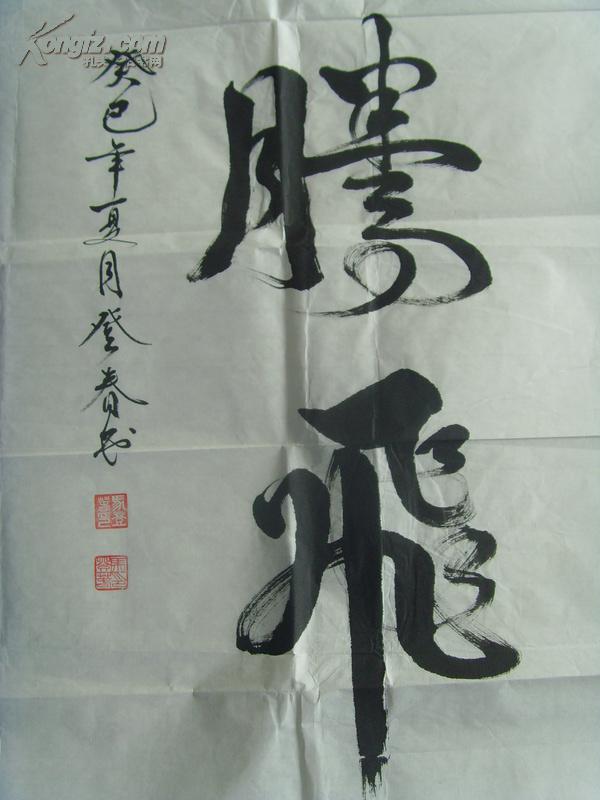 騰飛
癸巳年夏月登春书
Kongfz.com
孔夫子旧书网